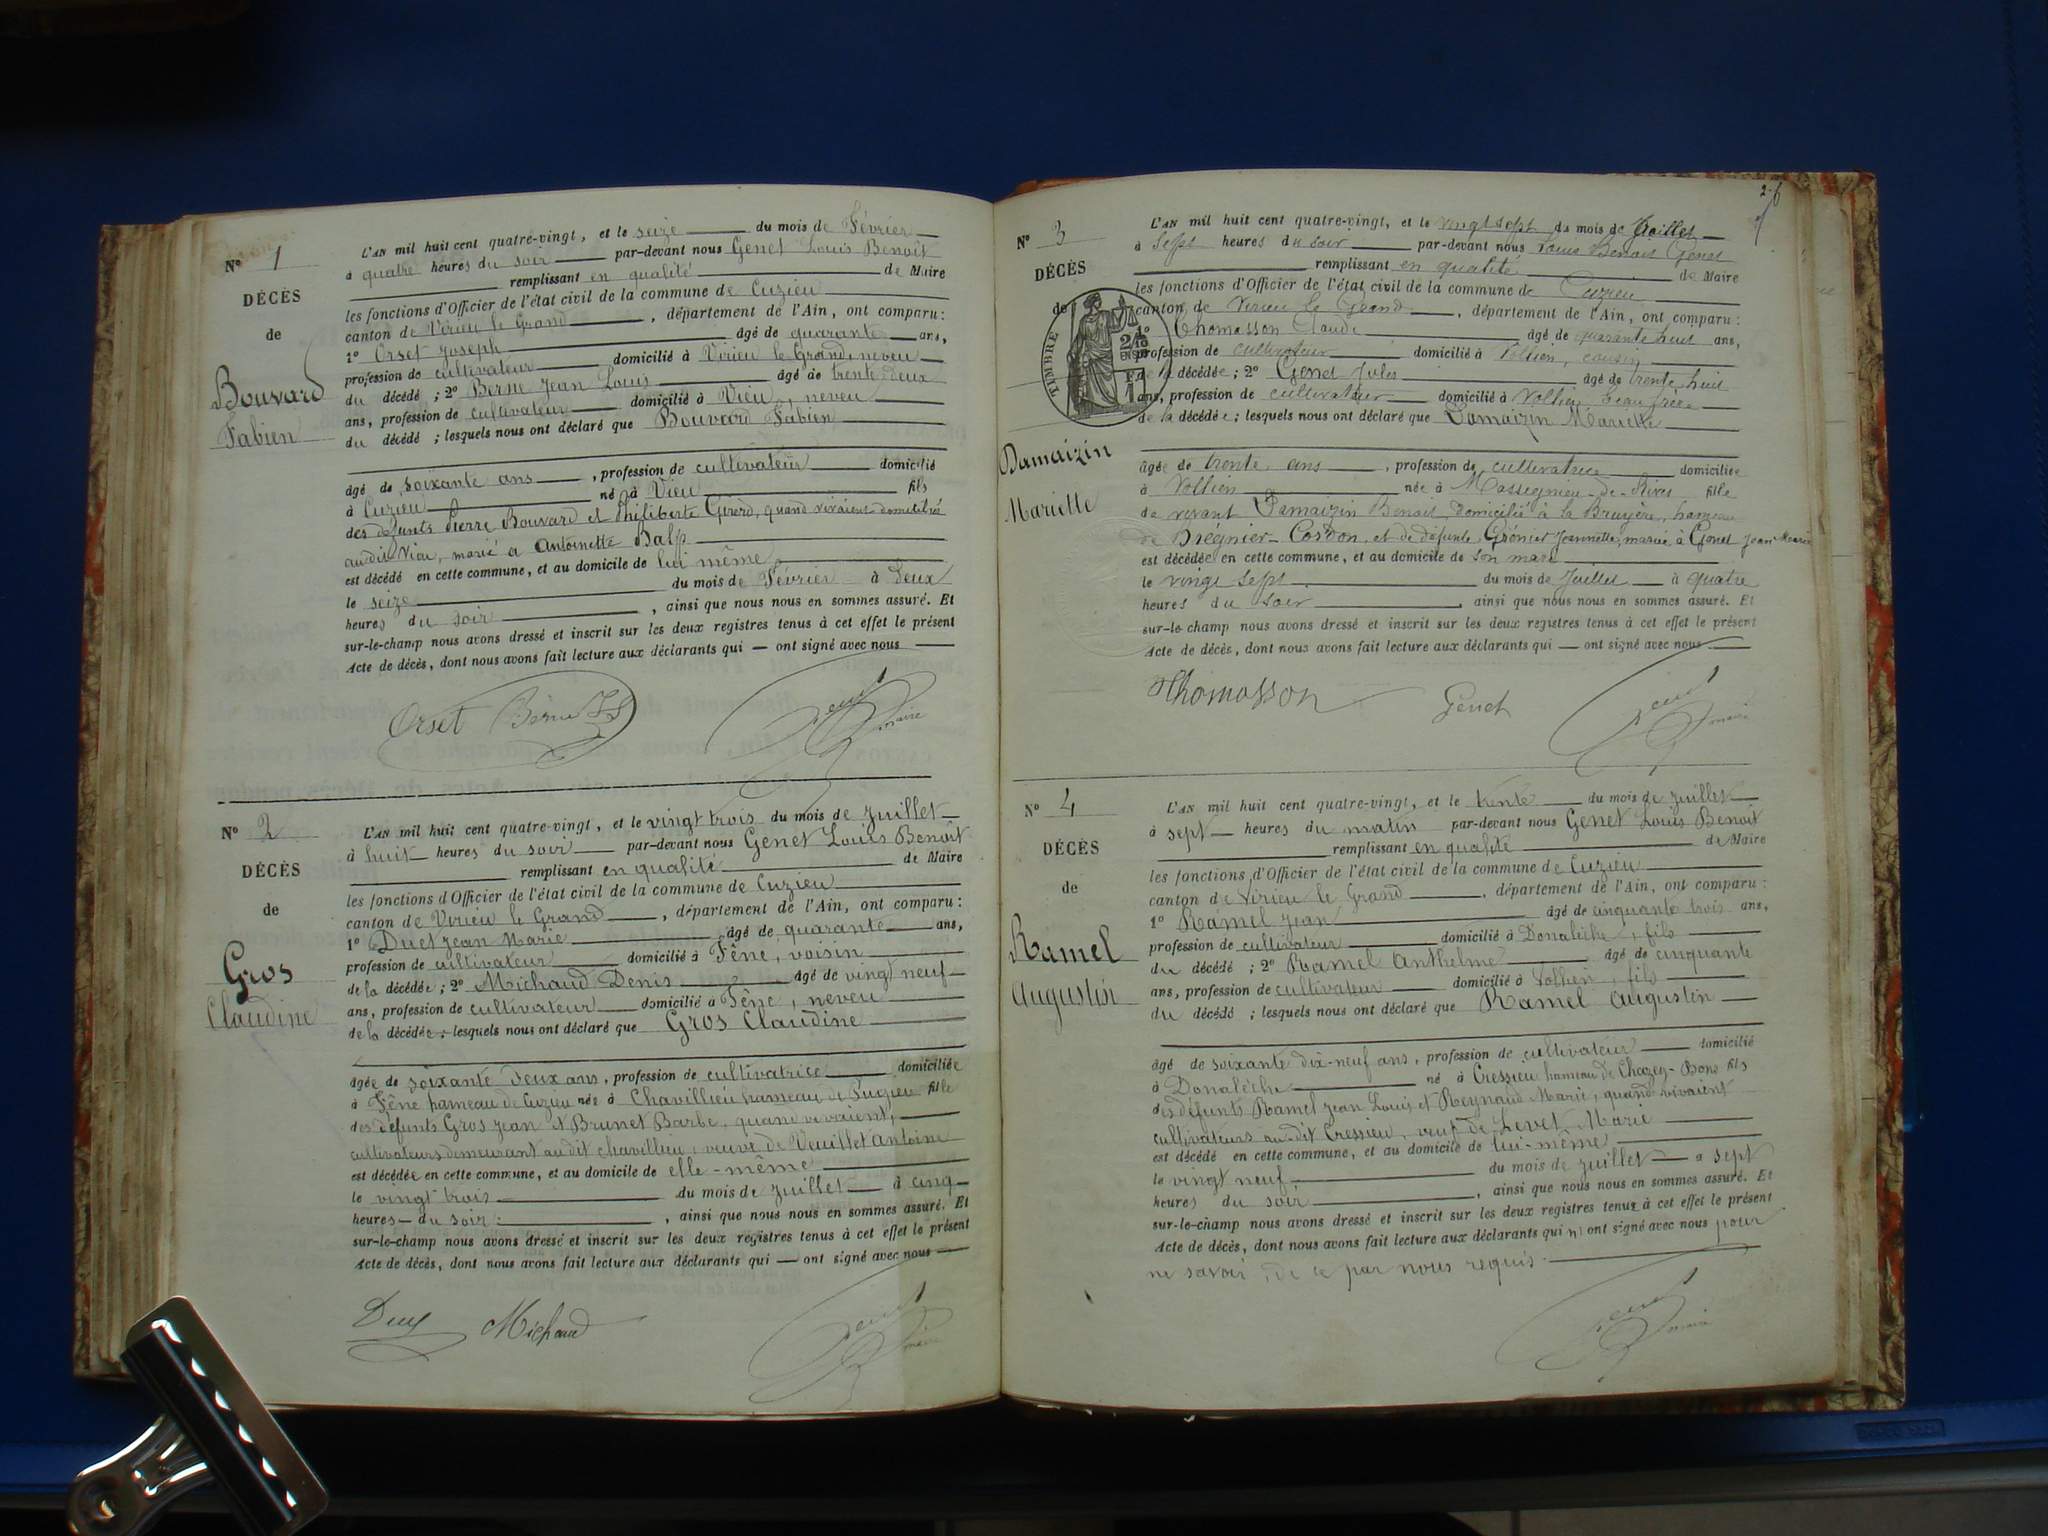 N° 1
DÉCÈS
de
Bouvard
Fabien
L'AN mil huit cent quatre-vingt, et le seize du mois de Février
à quatre heures du soir par-devant nous Genet Louis Benoît
remplissant en qualité de Maire
les fonctions d'Officier de l'état civil de la commune de Cuzieu
canton de Virieu le Grand, département de l'Ain, ont comparu:
1° Orset Joseph âgé de quarante ans,
profession de cultivateur domicilié à Virieu le Grand, neveu
du décédé ; 2° Berne Jean Louis âgé de trente deux
ans, profession de cultivateur domicilié à Vieu, neveu
du décédé ; lesquels nous ont déclaré que Bouvard Fabien
âgé de soixante ans, profession de cultivateur domicilié
à Cuzieu né à Vieu fils
des défunts Pierre Bouvard et Philiberte Girerd, quand vivaient domiciliés
audit Vieu, marié a Antoinette Balp
est décédé en cette commune, et au domicile de lui même
le seize du mois de Février à deux
heures du soir, ainsi que nous nous en sommes assuré. Et
sur-le-champ nous avons dressé et inscrit sur les deux registres tenus à cet effet le présent
Acte de décès, dont nous avons fait lecture aux déclarants qui — ont signé avec nous
Orset Berne maire
N° 2
DÉCÈS
de
Gros
Claudine
L'AN mil huit cent quatre-vingt, et le vingt trois du mois de juillet
à huit heures du soir par-devant nous Genet Louis Benoît
remplissant en qualité de Maire
les fonctions d'Officier de l'état civil de la commune de Cuzieu
canton de Virieu le Grand, département de l'Ain, ont comparu:
1° Ducy Jean Marie âgé de quarante ans,
profession de cultivateur domicilié à Fêne, voisin
de la décédée ; 2° Michaud Denis âgé de vingt neuf
ans, profession de cultivateur domicilié à Fêne, neveu
de la décédée ; lesquels nous ont déclaré que Gros Claudine
âgée de soixante deux ans, profession de cultivatrice domiciliée
à Fêne hameau de Cuzieu née à Chavillieu hameau de Pugieu fille
des défunts Gros Jean et Brunet Barbe, quand vivaient,
cultivateurs demeurant audit chavillieu, veuve de Veuillet Antoine
est décédée en cette commune, et au domicile de elle-même
le vingt trois du mois de juillet à cinq
heures du soir, ainsi que nous nous en sommes assuré. Et
sur-le-champ nous avons dressé et inscrit sur les deux registres tenus à cet effet le présent
Acte de décès, dont nous avons fait lecture aux déclarants qui — ont signé avec nous
Ducy Michaud maire
26
N° 3
DÉCÈS
de
Damaizin
Mariette
TIMBRE
L'AN mil huit cent quatre-vingt, et le vingt sept du mois de Juillet
à sept heures du soir par-devant nous Louis Benoit Genet
remplissant en qualité de Maire
les fonctions d'Officier de l'état civil de la commune de Cuzieu
canton de Virieu le Grand, département de l'Ain, ont comparu:
1° Thomasson Claude âgé de quarante huit ans,
profession de cultivateur domicilié à Vollien, cousin
de la décédée ; 2° Genet Jules âgé de trente huit
ans, profession de cultivateur domicilié à Vollien beau frère
de la décédée ; lesquels nous ont déclaré que Damaizin Mariette
âgée de trente ans, profession de cultivatrice domiciliée
à Vollien née à Massegnieu-de-Rives fille
de vivant Damaizin Benoit, domicilié à la Bruyère, hameau
de Brégnier-Cordon, et de défunte Grénier Jeannette, mariée à Genet Jean Marie
est décédée en cette commune, et au domicile de son mari
le vingt sept du mois de Juillet à quatre
heures du soir, ainsi que nous nous en sommes assuré. Et
sur-le-champ nous avons dressé et inscrit sur les deux registres tenus à cet effet le présent
Acte de décès, dont nous avons fait lecture aux déclarants qui — ont signé avec nous
Thomasson Genet maire
N° 4
DÉCÈS
de
Ramel
Augustin
L'AN mil huit cent quatre-vingt, et le trente du mois de juillet
à sept heures du matin par-devant nous Genet Louis Benoît
remplissant en qualité de Maire
les fonctions d'Officier de l'état civil de la commune de Cuzieu
canton de Virieu le Grand, département de l'Ain, ont comparu:
1° Ramel Jean âgé de cinquante trois ans,
profession de cultivateur domicilié à Donalèche, fils
du décédé ; 2° Ramel Anthelme âgé de cinquante
ans, profession de cultivateur domicilié à Vollien, fils
du décédé ; lesquels nous ont déclaré que Ramel Augustin
âgé de soixante dix-neuf ans, profession de cultivateur domicilié
à Donalèche né à Cressieu hameau de Chazey-Bons fils
des défunts Ramel Jean Louis et Reynaud Marie, quand vivaient
cultivateurs au-dit Cressieu, veuf de Levet Marie
est décédé en cette commune, et au domicile de lui-même
le vingt neuf du mois de juillet a sept
heures du soir, ainsi que nous nous en sommes assuré. Et
sur-le-champ nous avons dressé et inscrit sur les deux registres tenus à cet effet le présent
Acte de décès, dont nous avons fait lecture aux déclarants qui n'ont signé avec nous pour
ne savoir, de ce par nous requis.
maire